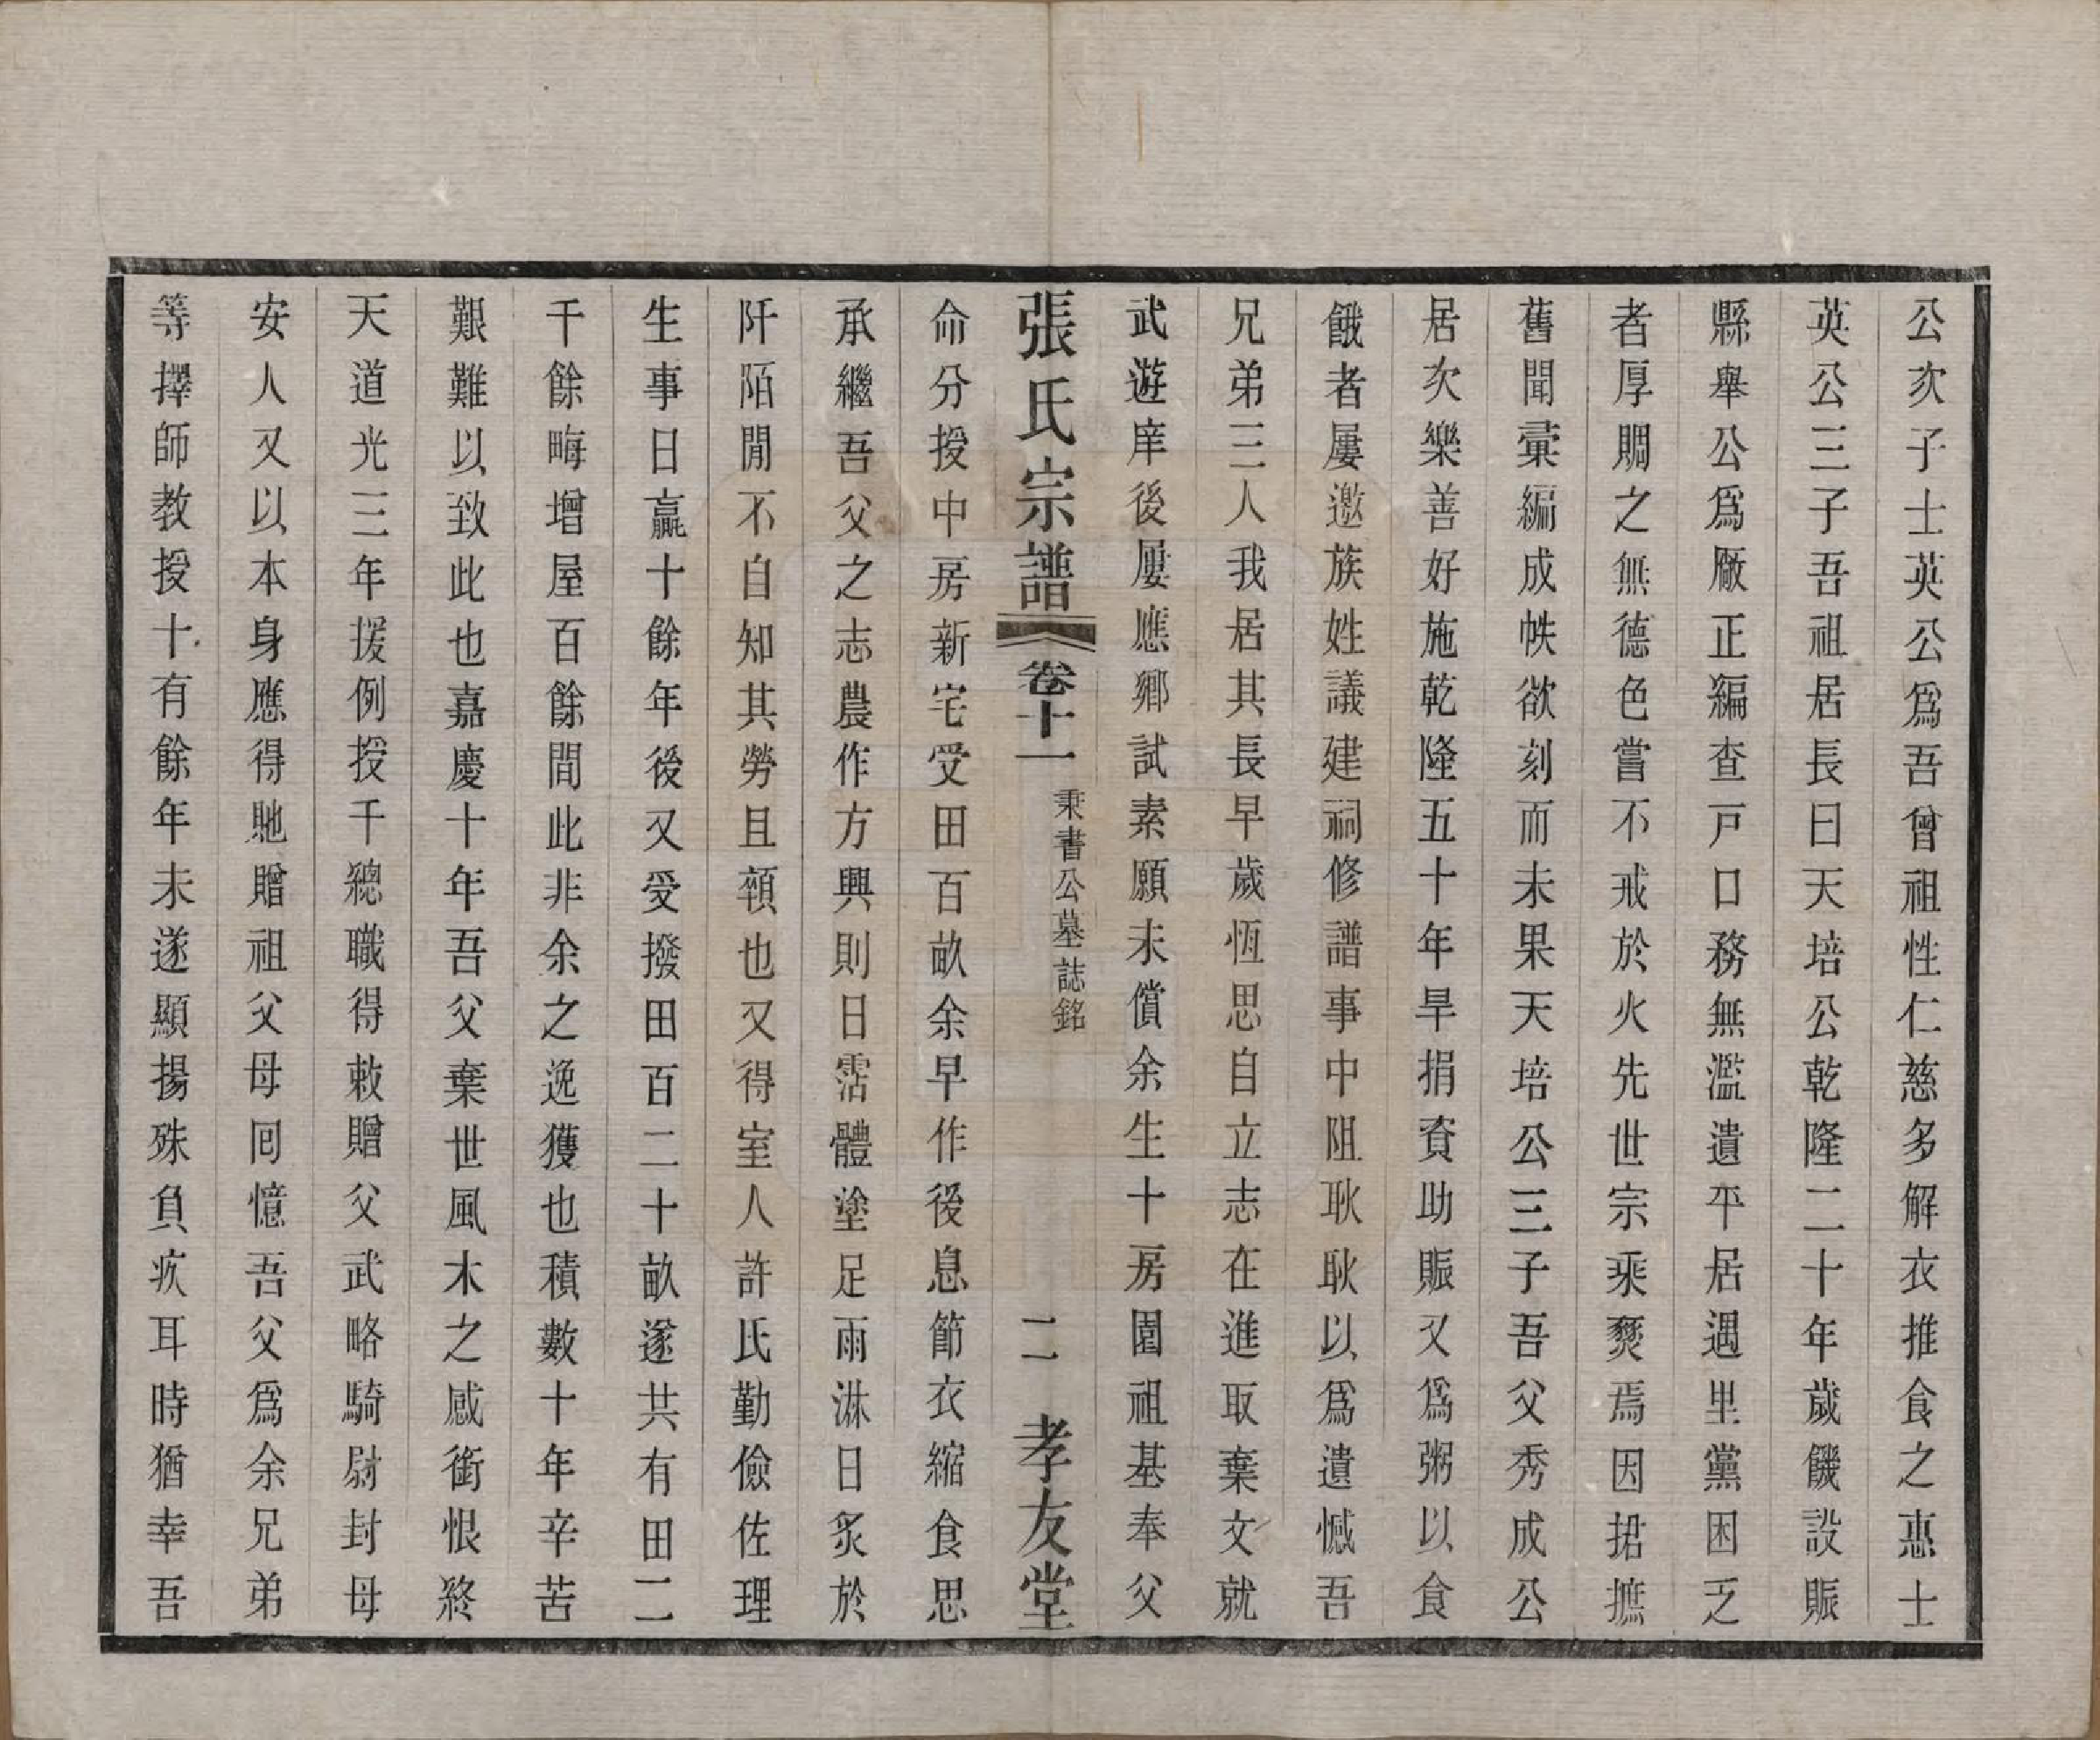 公次子士英公爲吾曾祖性仁慈多解衣推食之惠士
英公三子吾祖居長曰天培公乾隆二十年歲饑設賑
縣舉公爲廠正編查戸口務無濫遺平居遇里黨困乏
者厚賙之無德色嘗不戒於火先世宗乘燹焉因捃摭
舊聞彙編成帙欲刻而未果天培公三子吾父秀成公
居次樂善好施乾隆五十年旱捐資助賑又爲粥以食
餓者屢邀族姓議建祠修譜事中阻耿耿以爲遺憾吾
兄弟三人我居其長早歲恆思自立志在進取棄文就
武遊庠後屢應鄉試素願未償余生十房園祖基奉父
張氏宗譜 卷十一 秉書公墓誌銘 二 孝友堂
命分授中房新宅受田百畝余早作後息節衣縮食思
承繼吾父之志農作方興則日霑體塗足雨淋日炙於
阡陌閒不自知其勞且頓也又得室人許氏勤儉佐理
生事日贏十餘年後又受撥田百二十畝遂共有田二
千餘畮增屋百餘間此非余之逸獲也積數十年辛苦
艱難以致此也嘉慶十年吾父棄世風木之感銜恨終
天道光三年援例授千總職得敕贈父武略騎尉封母
安人又以本身應得貤贈祖父母囘憶吾父爲余兄弟
等擇師教授十有餘年未遂顯揚殊負疚耳時猶幸吾